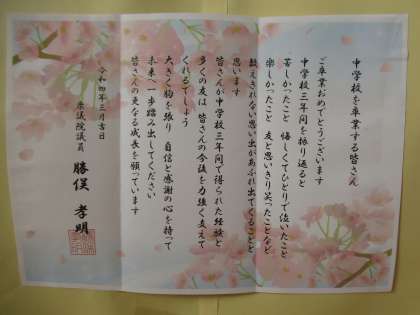 中学校を卒業する皆さん
ご卒業おめでとうございます
中学校三年間を振り返ると
苦しかったこと 悔しくてひとりで泣いたこと
楽しかったこと 友と思いきり笑ったことなど
数えきれない思い出があふれ出てくることと
思います
皆さんが中学校三年間で得られた経験と
多くの友は 皆さんの今後を力強く支えて
くれるでしょう
大きく胸を張り 自信と感謝の心を持って
未来へ一歩踏み出してください
皆さんの更なる成長を願っています
令和四年三月吉日
衆議院議員 勝俣 孝明